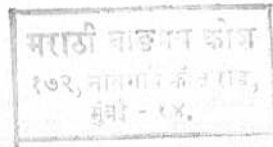 मराठी वाङमय कोश
१७२, नायगांव क्रॉस रोड,
मुंबई - १४.